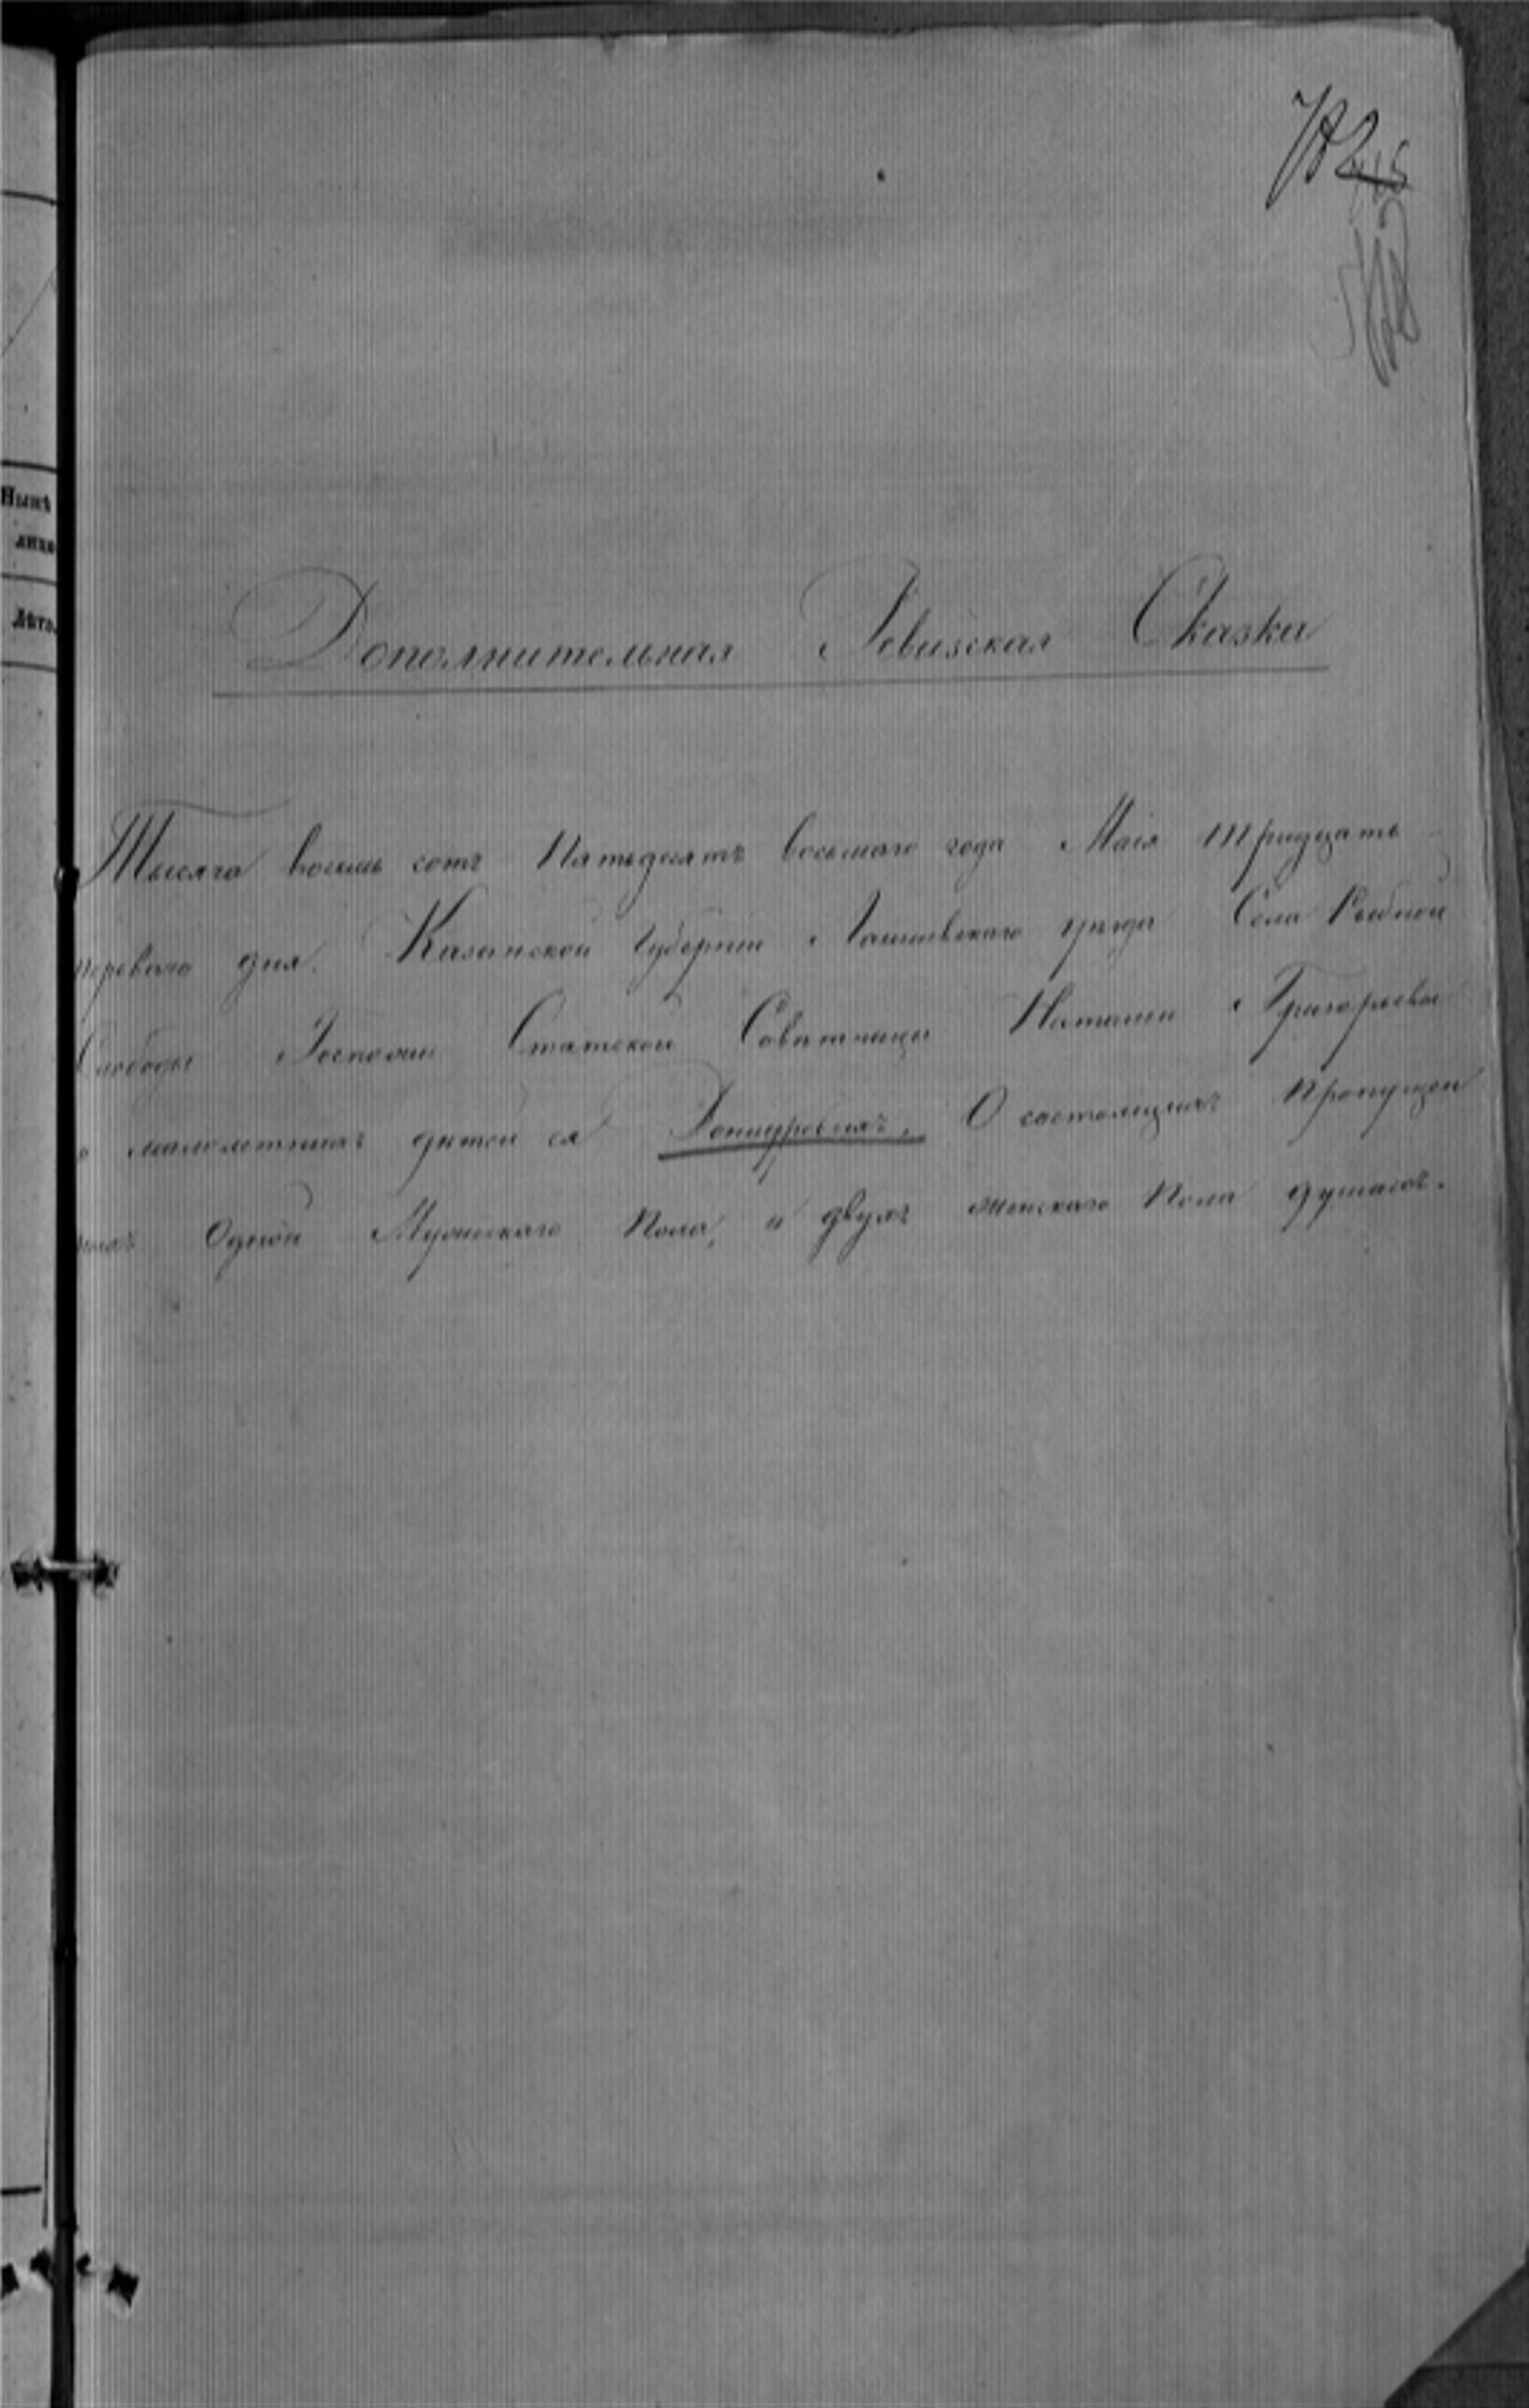 Нынѣ
лихо
Лѣта.
Дополнительная Ревизская Сказка
Тысяча восемь сотъ Пятьдесятъ восьмаго года Маія тридцать
перваго дня. Казанской Губерніи Лаишевскаго уѣзда Села Рыбной
Слободы Госпожи Статской Совѣтницы Наталіи Григорьевы
малолетныхъ дѣтей ея О состоящихъ пропущен
ныхъ Одной Мужескаго пола, и двухъ женскаго пола душахъ.